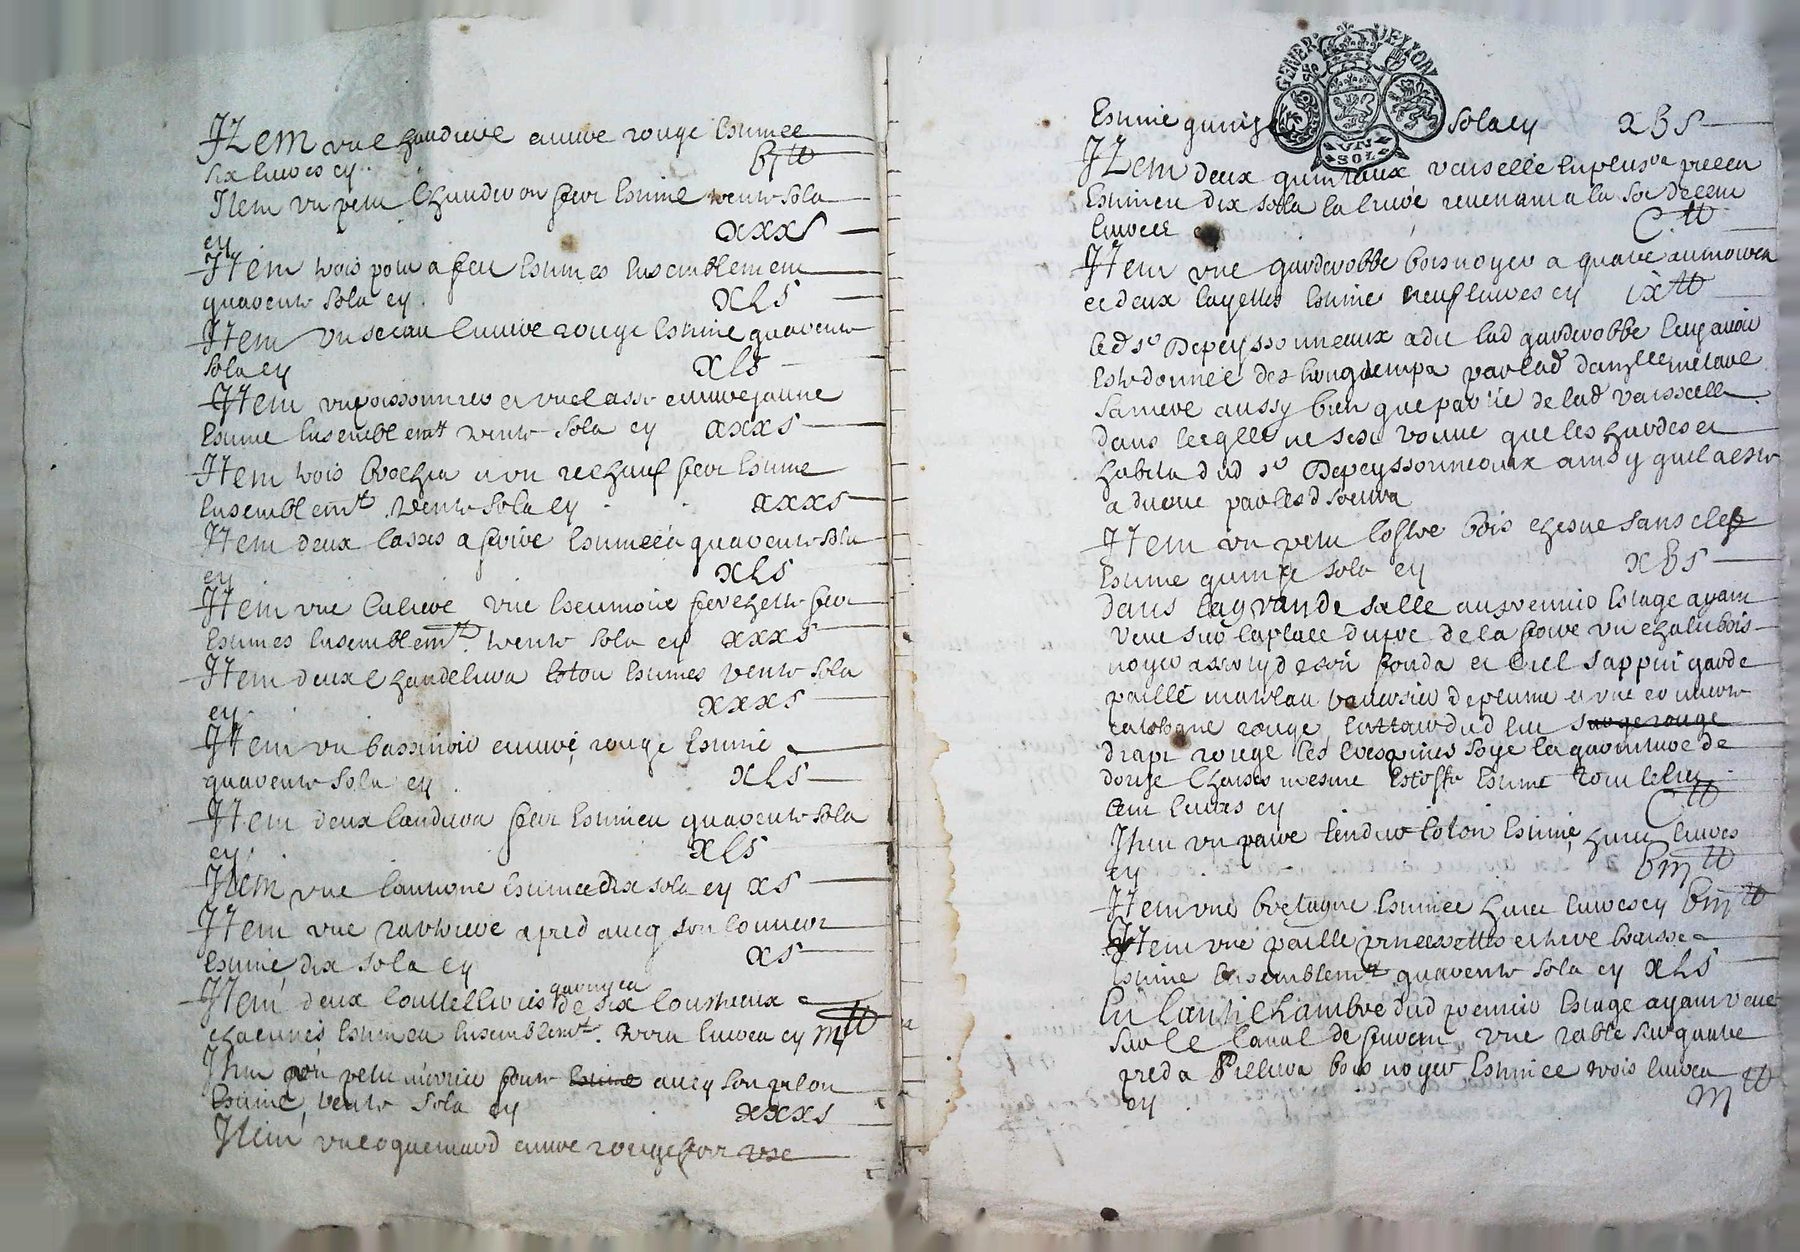 Item une chaudiere cuivre rouge Estimee
six livres cy
Bjtt
Item un petit Chaudron fer Estimé trente sols
cy xxxs
Item trois pots a feu Estimes Ensemblement
quarente sols cy xLs
Item un seau cuivre rouge Estimé quarente
sols cy xLs
Item une poissonniere et une casse cuivre jaune
Estimé Ensemblemt trente sols cy xxxs
Item trois broches et un rechauf fer Estimé
Ensemblemt trente sols cy xxxs
Item deux casses a frire Estimées quarente sols
cy xLs
Item une culiere une Escumoire fer
Estimes Ensemblemt. trente sols cy xxxs
Item deux chandeliers loton Estimes trente sols
cy xxxs
Item un bassinoir cuivre rouge Estimé
quarente sols cy xLs
Item deux landiers fer Estimes quarente sols
cy xLs
Item une lanterne Estimee dix sols cy xs
Item une tourtiere a pied avecq son couvert
Estimé dix sols cy xs
Item deux couttellieres garnyes
de six cousteaux
chacunes Estimes Ensemblemt. trois livres cy iijtt
Item un petit mortier fonte Estimé avecq son pilon
Estimé trente sols cy xxxs
Item un coquemard cuivre rouge fort usé
GENER. DE LYON
UN SOL
Estimé quinze sols cy xBs
Item deux quintaux vaiselle
Estimeu dix sols la livre revenant a la so de cent
livres Ctt
Item une garderobbe bois noyer a quatre armoires
et deux layettes Estimé neuf livres cy ixtt
led sr Depeyssonneaux a dit lad garderobbe luy avoir
Este donnée des longtemps par lad
sa mere aussy bien que partie de lad vaisselle
dans ne sest trouvé que les hardes et
habits dud sr Depeyssonneaux ainsy quil a este
advoué par lesd sieurs
Item un petit coffre bois chesne sans clef
Estimé quinze sols cy xBs
dans la grande salle au premier Estage ayant
veue sur la place du pre de la foire un chalit bois
noyer assorty de son fonds et Ciel garde
paille matelas traversier de plume et une couverte
catalogne rouge Entour dud lit sarge rouge
drap rouge les soye la garniture de
douze Chaises mesme Estoffe Estimé tout le lit
cent livres cy Ctt
Item un paire Lendier loton Estimé huit livres
cy Biijtt
Item une bretagne Estimee huit livres cy Biijtt
Item une paille pincettes
Estimé Ensemblemt quarente sols cy xLs
En Lantichambre dud premier Estage ayant veue
sur le Canal de une table sur quatre
pieds a Pilliers bois noyer Estimee trois livres
cy iijtt